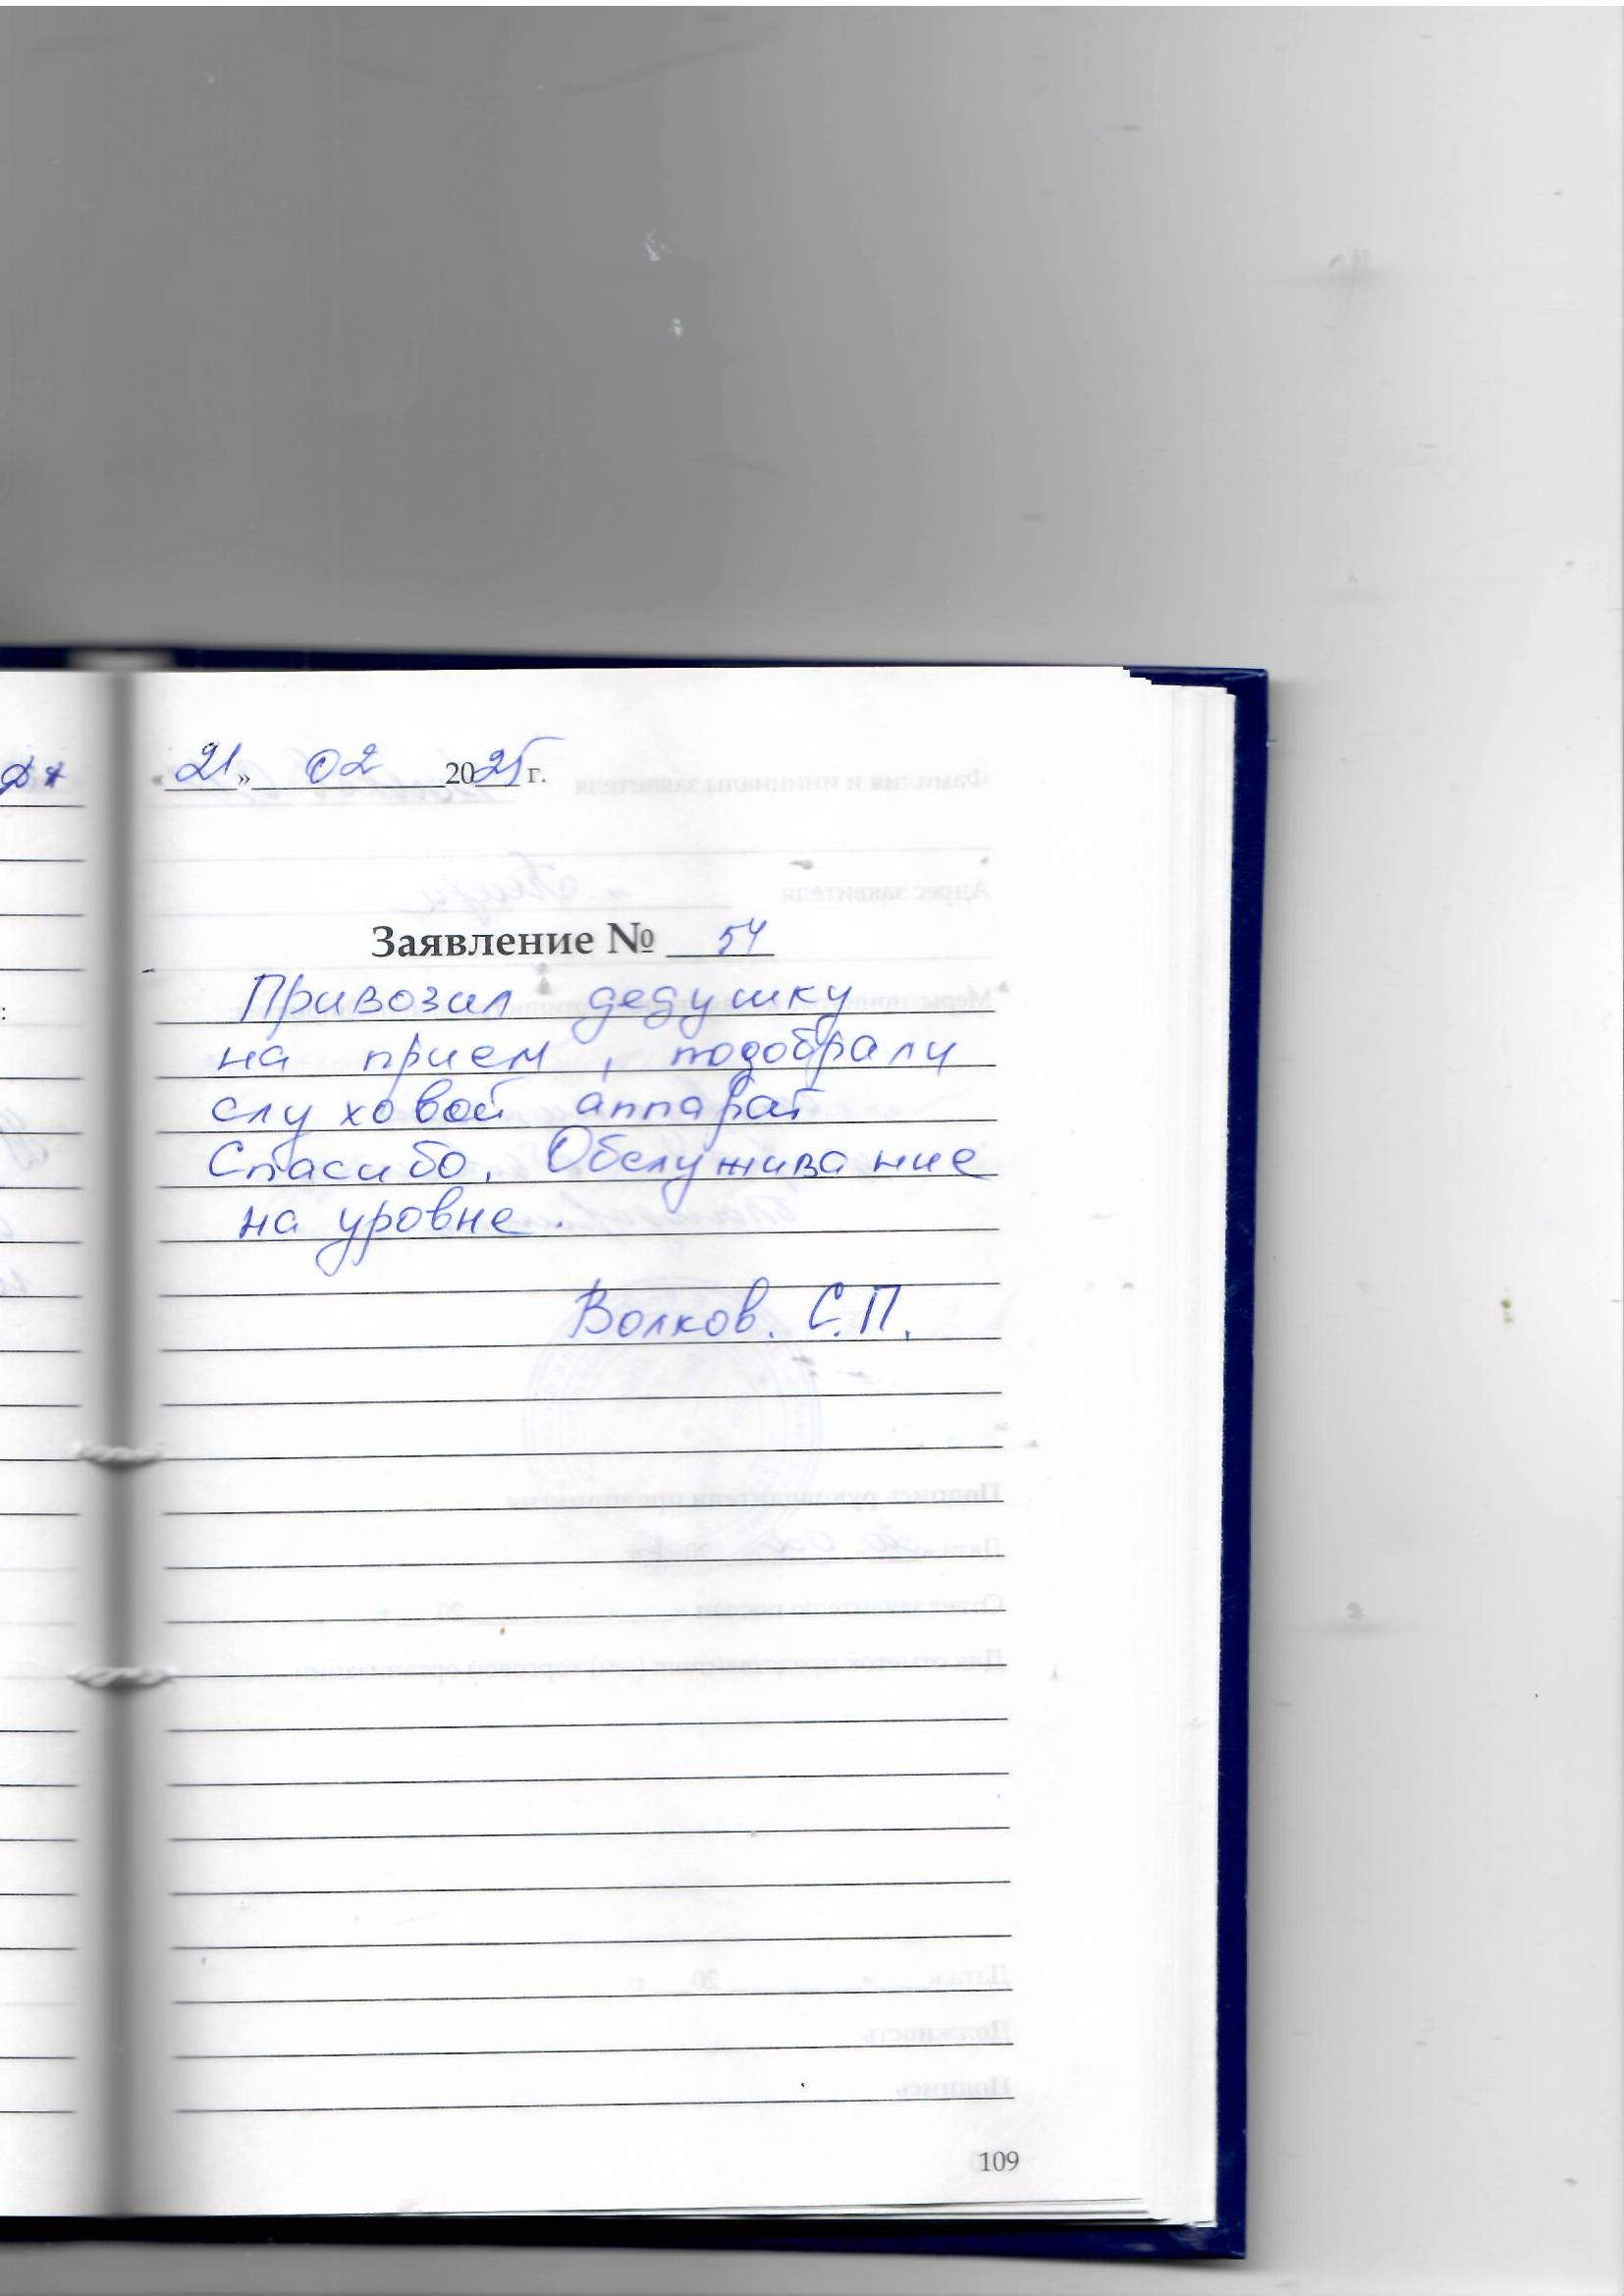 «21» 02 2025 г.
Заявление № 54
Привозил дедушку
на прием, подобрали
слуховой аппарат
Спасибо. Обслуживание
на уровне.
Волков. С.П.
109